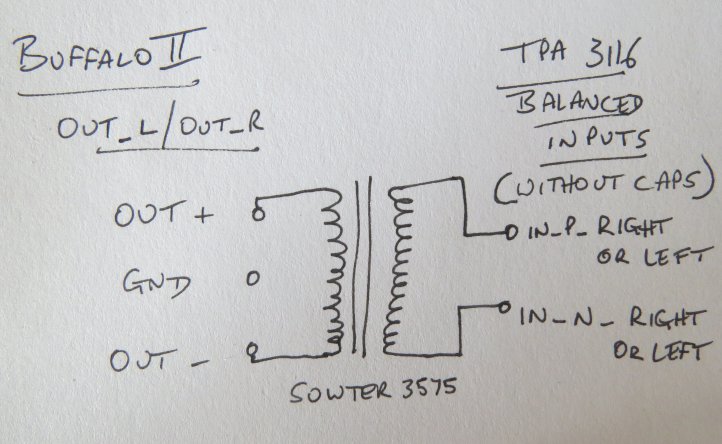 BUFFALO II
OUT_L/OUT_R
OUT +
GND
OUT -
SOWTER 3575
TPA 3116
BALANCED
INPUTS
(WITHOUT CAPS)
IN_P_RIGHT
OR LEFT
IN_N_RIGHT
OR LEFT